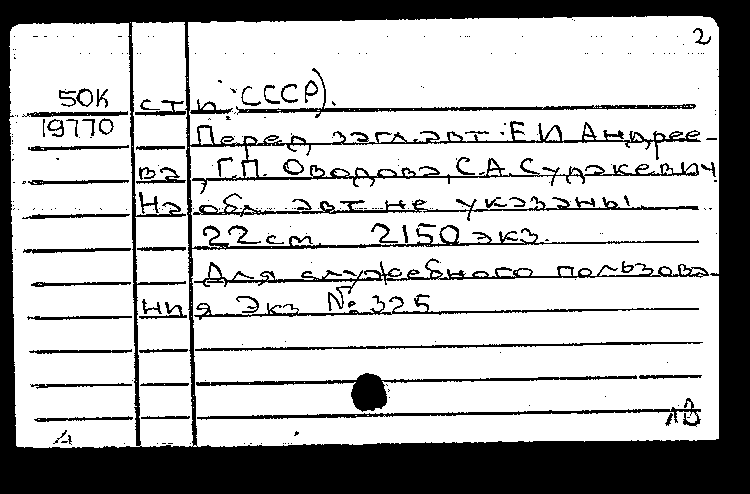 2
50К сти СССР).
19770 Перед загл. авт: Е.И. Андрее-
ва, Г.П. Оводова, С.А. Судакевич
На обл. авт не указаны.
22 см. 2150 экз.
Для служебного пользова-
ния Экз № 325
ЛВ